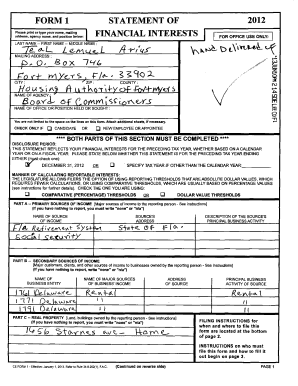 FORM 1 STATEMENT OF 2012
Please print or type your name, mailing address, agency name, and position below:
FINANCIAL INTERESTS
FOR OFFICE USE ONLY:
LAST NAME -- FIRST NAME -- MIDDLE NAME :
Teal Lemuel Arius
hand Delivered
MAILING ADDRESS :
P.O. Box 746
Fort Myers, Fla. 33902
CITY : ZIP : COUNTY :
Housing Authority of Fort Myers
NAME OF AGENCY :
Board of Commissioners
NAME OF OFFICE OR POSITION HELD OR SOUGHT :
You are not limited to the space on the lines on this form. Attach additional sheets, if necessary.
CHECK ONLY IF CANDIDATE OR NEW EMPLOYEE OR APPOINTEE
**** BOTH PARTS OF THIS SECTION MUST BE COMPLETED ****
DISCLOSURE PERIOD:
THIS STATEMENT REFLECTS YOUR FINANCIAL INTERESTS FOR THE PRECEDING TAX YEAR, WHETHER BASED ON A CALENDAR
YEAR OR ON A FISCAL YEAR. PLEASE STATE BELOW WHETHER THIS STATEMENT IS FOR THE PRECEDING TAX YEAR ENDING
EITHER (must check one):
DECEMBER 31, 2012 OR SPECIFY TAX YEAR IF OTHER THAN THE CALENDAR YEAR:
MANNER OF CALCULATING REPORTABLE INTERESTS:
THE LEGISLATURE ALLOWS FILERS THE OPTION OF USING REPORTING THRESHOLDS THAT ARE ABSOLUTE DOLLAR VALUES, WHICH
REQUIRES FEWER CALCULATIONS, OR USING COMPARATIVE THRESHOLDS, WHICH ARE USUALLY BASED ON PERCENTAGE VALUES
(see instructions for further details). CHECK THE ONE YOU ARE USING:
COMPARATIVE (PERCENTAGE) THRESHOLDS OR DOLLAR VALUE THRESHOLDS
PART A -- PRIMARY SOURCES OF INCOME [Major sources of income to the reporting person - See instructions]
(If you have nothing to report, you must write "none" or "n/a")
NAME OF SOURCE OF INCOME SOURCE'S ADDRESS DESCRIPTION OF THE SOURCE'S PRINCIPAL BUSINESS ACTIVITY
Fla Retirement System State of Fla.
Social Security
PART B -- SECONDARY SOURCES OF INCOME
[Major customers, clients, and other sources of income to businesses owned by the reporting person - See instructions]
(If you have nothing to report, you must write "none" or "n/a")
NAME OF BUSINESS ENTITY NAME OF MAJOR SOURCES OF BUSINESS' INCOME ADDRESS OF SOURCE PRINCIPAL BUSINESS ACTIVITY OF SOURCE
1761 Delaware Rental Rental
1771 Delaware " "
1791 Delaware " "
PART C -- REAL PROPERTY [Land, buildings owned by the reporting person - See instructions]
(If you have nothing to report, you must write "none" or "n/a")
1456 Starnes ave - Home
FILING INSTRUCTIONS for when and where to file this form are located at the bottom of page 2.
INSTRUCTIONS on who must file this form and how to fill it out begin on page 3.
(Continued on reverse side) PAGE 1